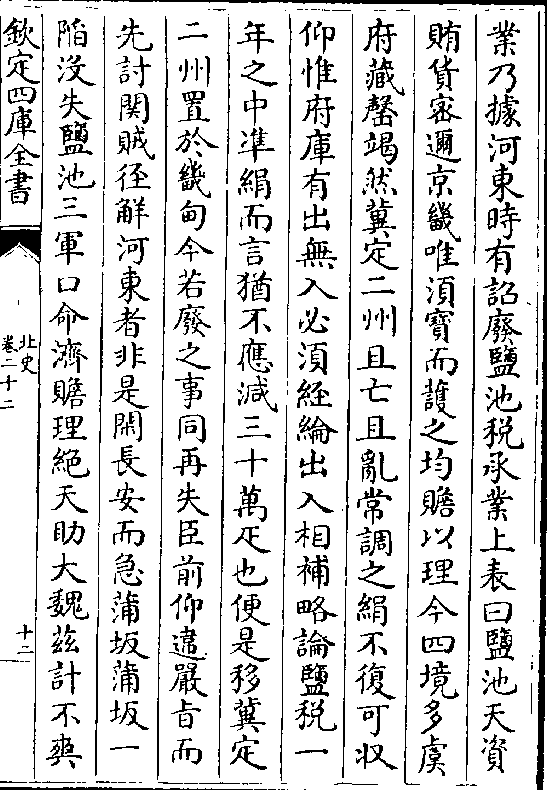 業乃據河東時有詔廢鹽池税承業上表曰鹽池天資
賄貨密邇京畿唯須寶而䕶之均贍以理今四境多虞
府藏罄竭然冀定二州且亡且亂常調之絹不復可収
仰惟府庫有出無入必須経綸出入相補略論鹽税一
年之中凖絹而言猶不應減三十萬疋也便是移冀定
二州置於畿甸今若廢之事同再失臣前仰違嚴㫖而
先討関賊徑解河東者非是閑長安而急蒲坂蒲坂一
陷没失鹽池三軍口命濟贍理絶天助大魏兹計不爽
欽定四庫全書
北史
卷二十二
十二